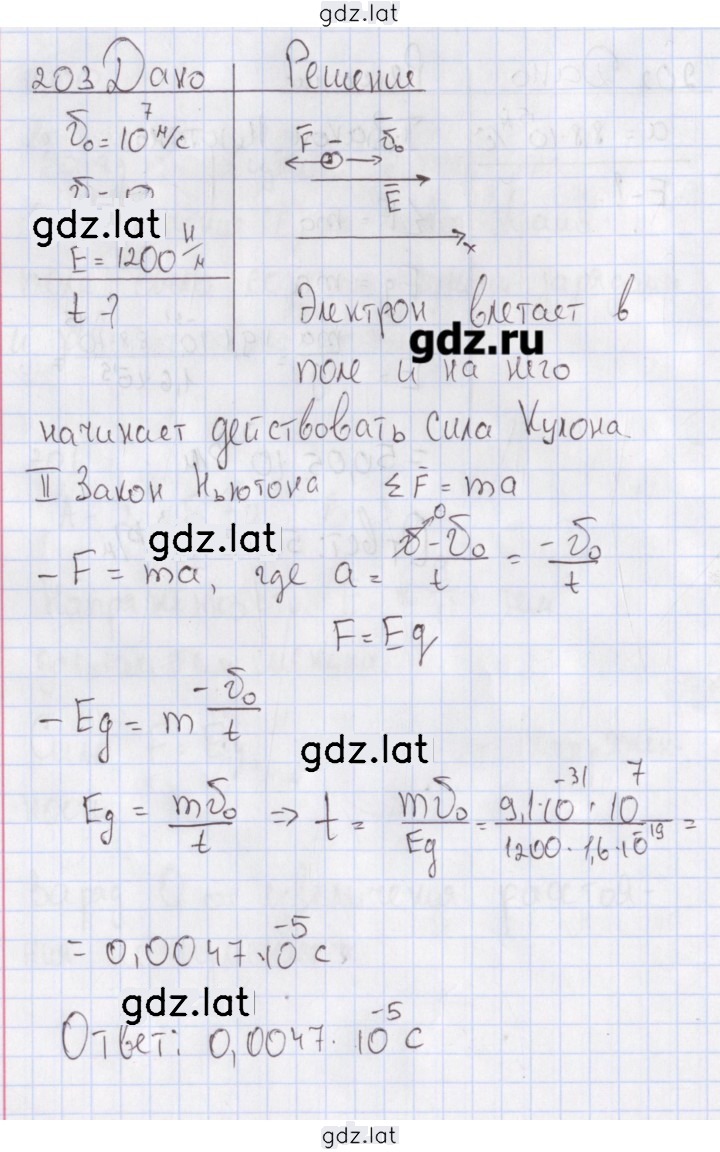 gdz.lat
203 Дано Решение
v̄₀ = 10⁷ м/с
F̄ − v̄₀
Ē
gdz.lat
E = 1200 Н/м
x
t - ?
Электрон влетает в
gdz.ru
поле и на него
начинает действовать сила Кулона.
II Закон Ньютона ΣF̄ = ma
gdz.lat
− F = ma, где a = (v⁰ − v₀)/t = −v₀/t
F = Eq
− Eq = m −v₀/t
gdz.lat
Eq = mv₀/t => t = mv₀/Eq = 9,1·10⁻³¹·10⁷/1200·1,6·10⁻¹⁹ =
= 0,0047·10⁻⁵ с
gdz.lat
Ответ: 0,0047·10⁻⁵ с
gdz.lat